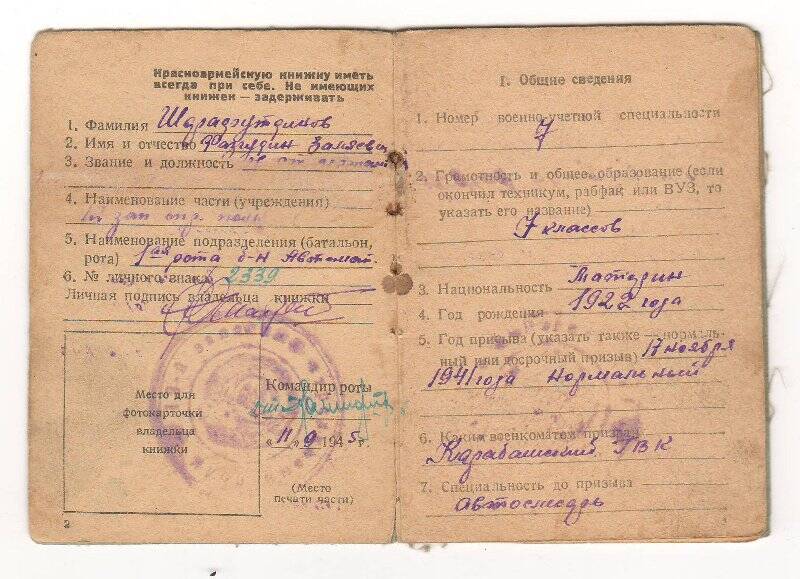 Красноармейскую книжку иметь
всегда при себе. Не имеющих
книжек — задерживать
1. Фамилия Шарафутдинов
2. Имя и отчество
3. Звание и должность
4. Наименование части (учреждения)
зап стр. полк
5. Наименование подразделения (батальон,
рота) 1ая рота б-н Автомат.
6. № личного знака 2339
Личная подпись владельца книжки
Место для
фотокарточки
владельца
книжки
Командир роты
„11„ 9 1945 г.
(Место
печати части)
2
I. Общие сведения
1. Номер военно-учетной специальности
7
2. Грамотность и общее образование (если
окончил техникум, рабфак или ВУЗ, то
указать его название)
7 классов
3. Национальность
4. Год рождения 1922 года
5. Год призыва (указать также — нормаль-
ный или досрочный призыв) 17 ноября
1941 года нормальный
6. Каким военкоматом призван
Карабашский ГВК
7. Специальность до призыва
автослесарь